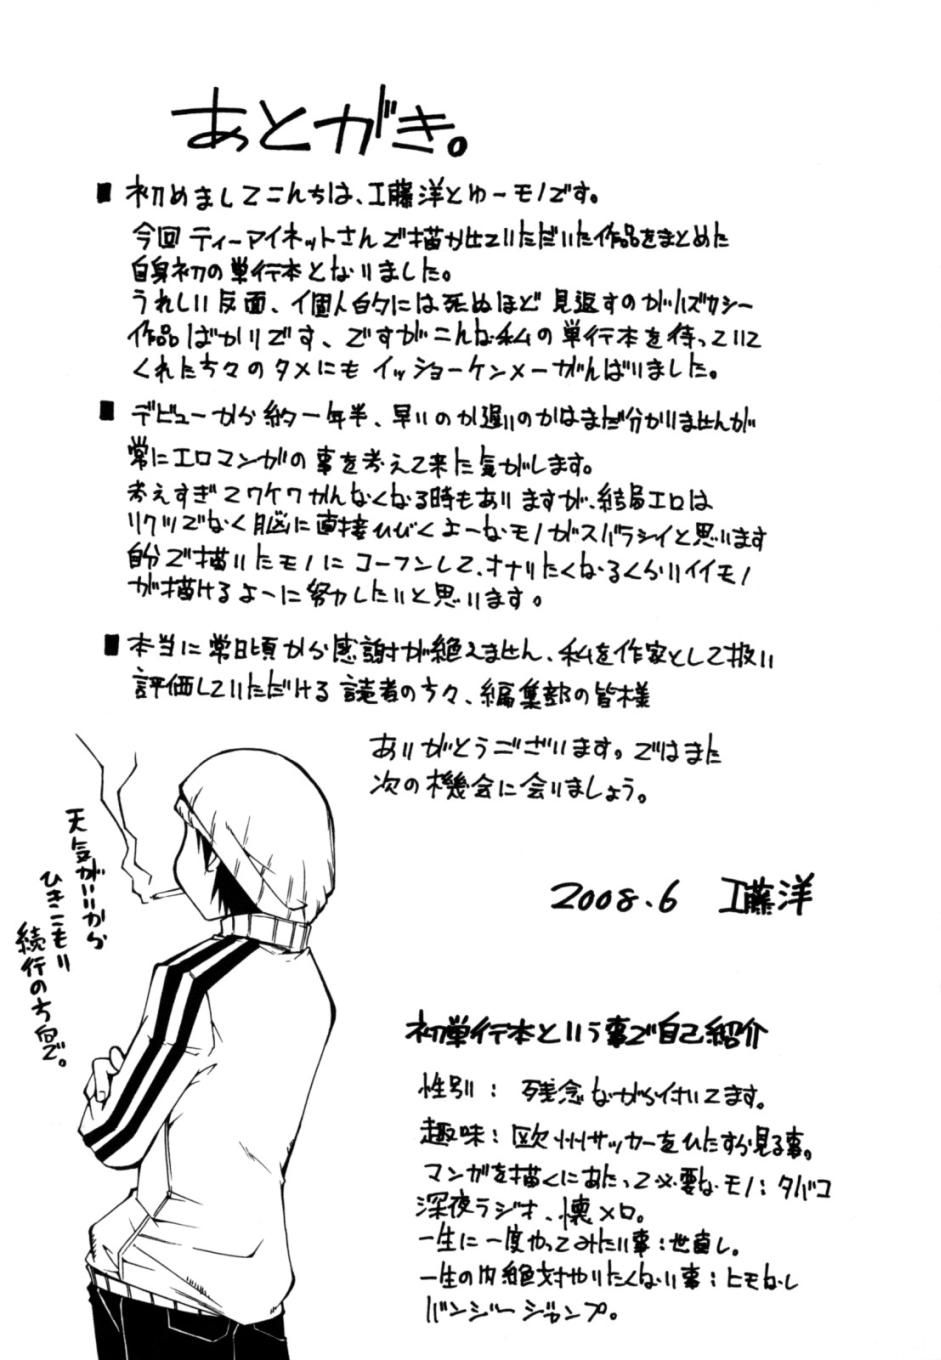 あとがき。
■ 初めましてこんちは、工藤洋とゆーモノです。
今回 ティーアイネットさんで描かせていただいた作品をまとめた
自身初の単行本となりました。
うれしい反面、個人的には死ぬほど見返すのがハズカシー
作品ばかりです、ですがこんな私の単行本を待っていて
くれた方々のタメにも イッショーケンメーがんばりました。
■ デビューから約一年半、早いのか遅いのかはまだ分かりませんが
常にエロマンガの事を考えて来た気がします。
考えすぎてワケワかんなくなる時もありますが、結局エロは
リクツでなく脳に直接ひびくよーなモノがスバラシイと思います
自分で描いたモノにコーフンして、オナりたくなるくらいイイモノ
が描けるよーに努力したいと思います。
■ 本当に常日頃から感謝が絶えません、私を作家として扱い
評価していただける読者の方々、編集部の皆様
ありがとうございます。ではまた
次の機会に会いましょう。
天気がいいから
ひきこもり
続行の方向で。
2008.6 工藤洋
初単行本という事で自己紹介
性別： 残念ながら付いてます。
趣味：欧州サッカーをひたすら見る事。
マンガを描くにあたって必要なモノ：タバコ
深夜ラジオ、懐メロ。
一生に一度やってみたい事：世直し。
一生の内絶対やりたくない事：ヒモなし
バンジージャンプ。